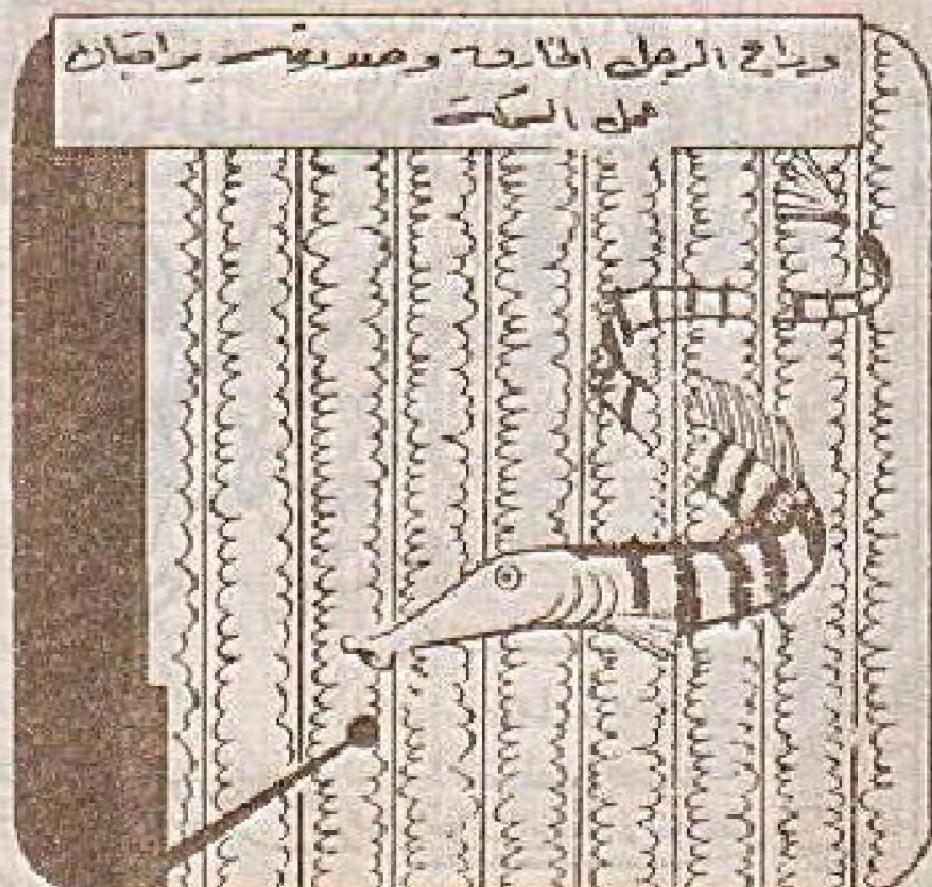 وراح الرجل الخارق وصديقه يراقبان
عمل السمكة